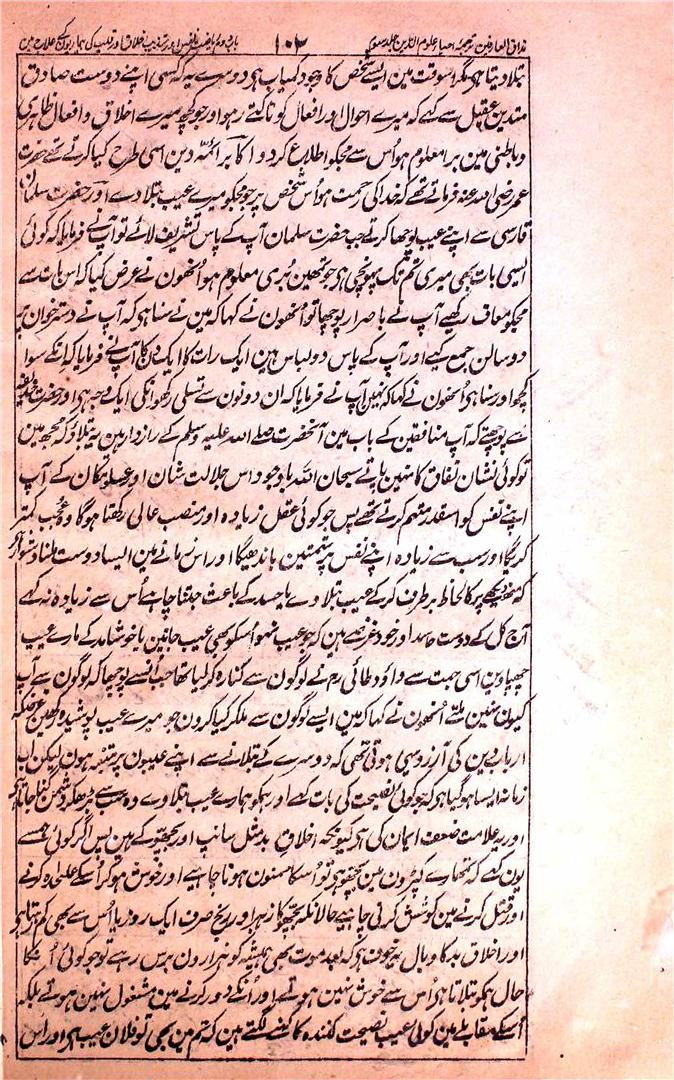 مذاق العارفین ترجمہ احیاء علوم الدین جلد سوم ۱۰۳ باب دوم ریاضت نفس اور تہذیب اخلاق اور قلب کی بیماریوں کے علاج میں
بتلا دیتا ہی مگر اسوقت مین ایسے شخص کا وجود کمیاب ہی دوسرے یہ کہ کسی اپنے دوست صادق
متدین عقیل سے کہے کہ میرے احوال اور افعال کو تاکتے رہو اور جو کچھ میرے اخلاق و افعال ظاہری
و باطنی مین برا معلوم ہو اُس سے مجکو اطلاع کر دو اکابر ائمۂ دین اسی طرح کیا کرتے تھے حضرت
عمر رضی اللہ عنہ فرماتے تھے کہ خدا کی رحمت ہو اُس شخص پر جو مجکو میرے عیب بتلا دے اور حضرت سلمان
فارسی سے اپنے عیب پوچھا کرتے جب حضرت سلمان آپ کے پاس تشریف لائے تو آپ نے فرمایا کہ کوئی
ایسی بات بھی میری تم تک پہونچی ہی جو تمھین بُری معلوم ہو اُنھون نے عرض کیا کہ اس بات سے
مجکو معاف رکھیے آپ نے باصرار پوچھا تو اُنھون نے کہا کہ مین نے سنا ہی کہ آپ نے دسترخوان پر
دو سالن جمع کیے اور آپ کے پاس دو لباس ہین ایک رات کا ایک دن کا آپ نے فرمایا کہ اِنکے سوا
کچھ اور سنا ہی اُنھون نے کہا کہ نہین آپ نے فرمایا کہ ان دونون سے تسلی رکھو انکی ایک وجہ ہی اور حضرت حذیفہ
سے پوچھتے کہ آپ منافقین کے باب مین آنحضرت صلے اللہ علیہ وسلم کے رازدار ہین یہ بتلاؤ کہ مجھ مین
تو کوئی نشان نفاق کا نہین پاتے سبحان اللہ باوجود اس جلالت شان اور علو مکان کے آپ
اپنے نفس کو اسقدر متہم کرتے تھے پس جو کوئی عقل زیادہ اور منصب عالی رکھتا ہوگا وہ عُجب کمتر
کریگا اور سب سے زیادہ اپنے نفس پر تہمتین باندھیگا اور اس زمانے مین ایسا دوست ملنا دشوار ہی
کہ لحاظ برطرف کر کے عیب بتلا دے یا حسد کے باعث جتنا چاہیے اُس سے زیادہ نہ کہے
آج کل کے دوست حاسد اور خود غرض ہین کہ جو عیب نہو اُسکو بھی عیب جانین یا خوشامد کے مارے عیب
چھپاوین اسی جہت سے داؤد طائی رح نے لوگون سے کنارہ کر لیا تھا جب اُنسے پوچھا کہ لوگون سے آپ
کیون نہین ملتے اُنھون نے کہا کہ مین ایسے لوگون سے ملکر کیا کرون جو میرے عیب پوشیدہ رکھین غرضکہ
ارباب دین کی آرزو یہی ہوتی تھی کہ دوسرے کے بتلانے سے اپنے عیبون پر متنبہ ہون لیکن اب
زمانہ ایسا ہو گیا ہی کہ جو کوئی نصیحت کی بات کہے اور ہمکو ہمارے عیب بتلاوے وہ سب سے بڑھکر دشمن گنا جاتا ہی
اور یہ علامت ضعف ایمان کی ہی کیونکہ اخلاق بد مثل سانپ اور بچھو کے ہین پس اگر کوئی ہمسے
یون کہے کہ تمھارے کپڑون مین بچھو ہی تو اُسکا ممنون ہونا چاہیے اور خوش ہو کر اُسکے علحدہ کرنے
اور قتل کرنے مین کوشش کرنی چاہیے حالانکہ بچھو کا زہر اور رنج صرف ایک روز یا اُس سے بھی کم رہتا ہی
اور اخلاق بد کا وبال یہ خوف ہی کہ بعد موت بھی ہمیشہ کو یا ہزارون برس رہے تو جو کوئی اُنکا
حال ہمکو بتلاتا ہی اُس سے خوش نہین ہوتے اور اُنکے دور کرنے مین مشغول نہین ہوتے بلکہ
اُسکے مقابلے مین کوئی عیب نصیحت کنندہ کا کہنے لگتے ہین کہ تم مین بھی تو فلان عیب ہی اور اس